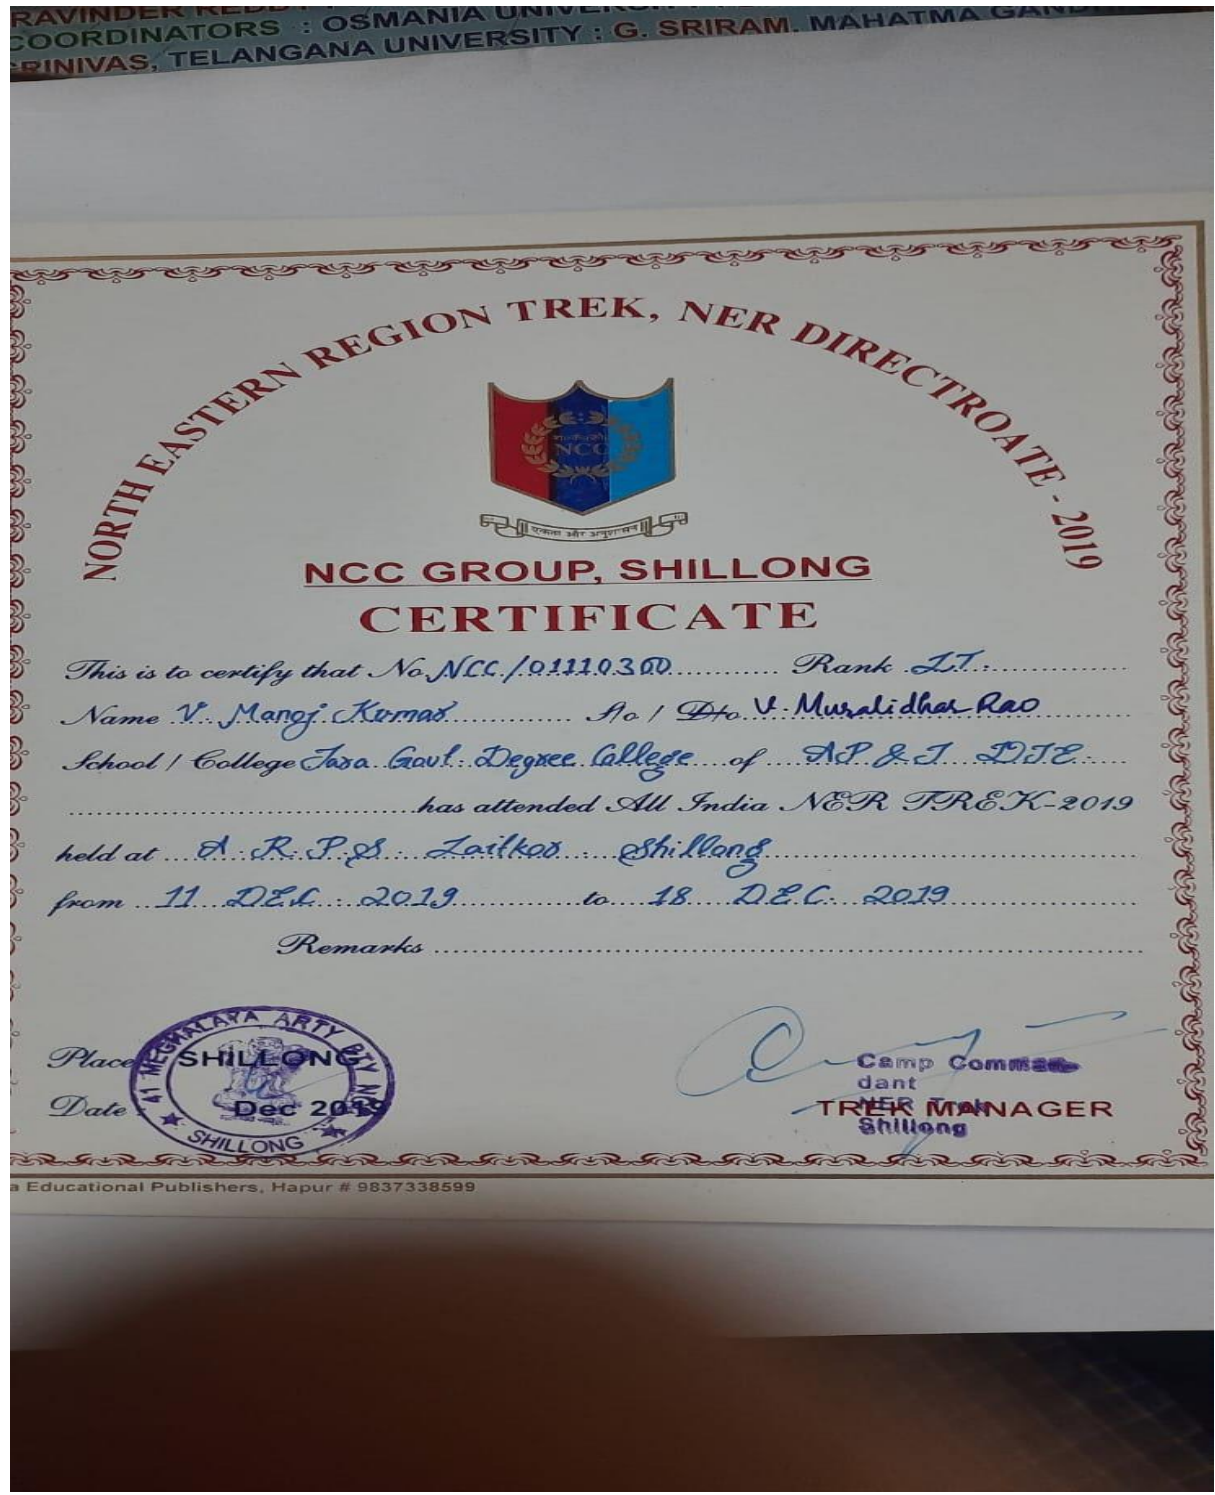 RAVINDER REDDY
COORDINATORS : OSMANIA UNIVERSITY
SRINIVAS, TELANGANA UNIVERSITY : G. SRIRAM. MAHATMA GANDHI
NORTH EASTERN REGION TREK, NER DIRECTROATE - 2019
NCC
एकता और अनुशासन
NCC GROUP, SHILLONG
CERTIFICATE
This is to certify that No. NCC/01110300 Rank LT.
Name V. Manoj Kumar S/o / D/o V. Muralidhar Rao
School / College Tara Govt. Degree College of AP & T DTE.
has attended All India NER TREK-2019
held at A.R.P.S. Laitkor Shillong
from 11 DEC. 2019 to 18 DEC. 2019
Remarks
41 MEGHALAYA ARTY BTY NCC
SHILLONG
Place SHILLONG
Date Dec 2019
Camp Comman
dant
NER Trek
Shillong
TREK MANAGER
a Educational Publishers, Hapur # 9837338599